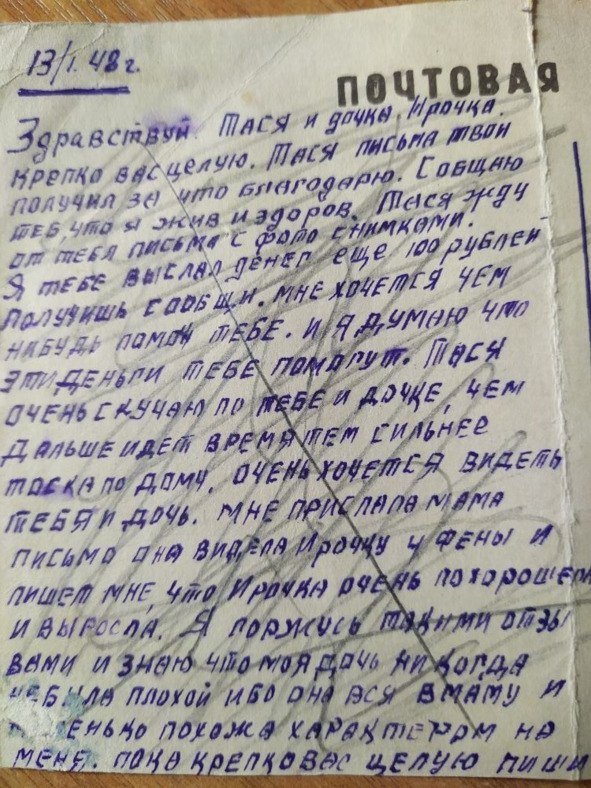 13/I. 48 г.
ПОЧТОВАЯ
Здравствуй Тася и дочка Ирочка.
крепко вас целую. Тася письма твои
получил за что благодарю. Собщаю
теб, что я жив и здоров. Тася жду
от тебя письма с фото снимками.
Я тебе выслал денег еще 100 рублей
получишь сообщи. мне хочется чем
нибудь помоч тебе. и я думаю что
эти деньги тебе помогут. Тася
очень скучаю по тебе и дочке, чем
дальше идет время тем сильнее
тоска по дому, очень хочется видеть
тебя и дочь. мне прислала мама
письмо она видела Ирочку у Фены и
пишет мне, что Ирочка очень похорошела
и выросла. Я горжусь такими отзы
вами и знаю что моя дочь никогда
небыла плохой ибо она вся в маму и
похожа характером на
меня. пока крепко вас целую пиши